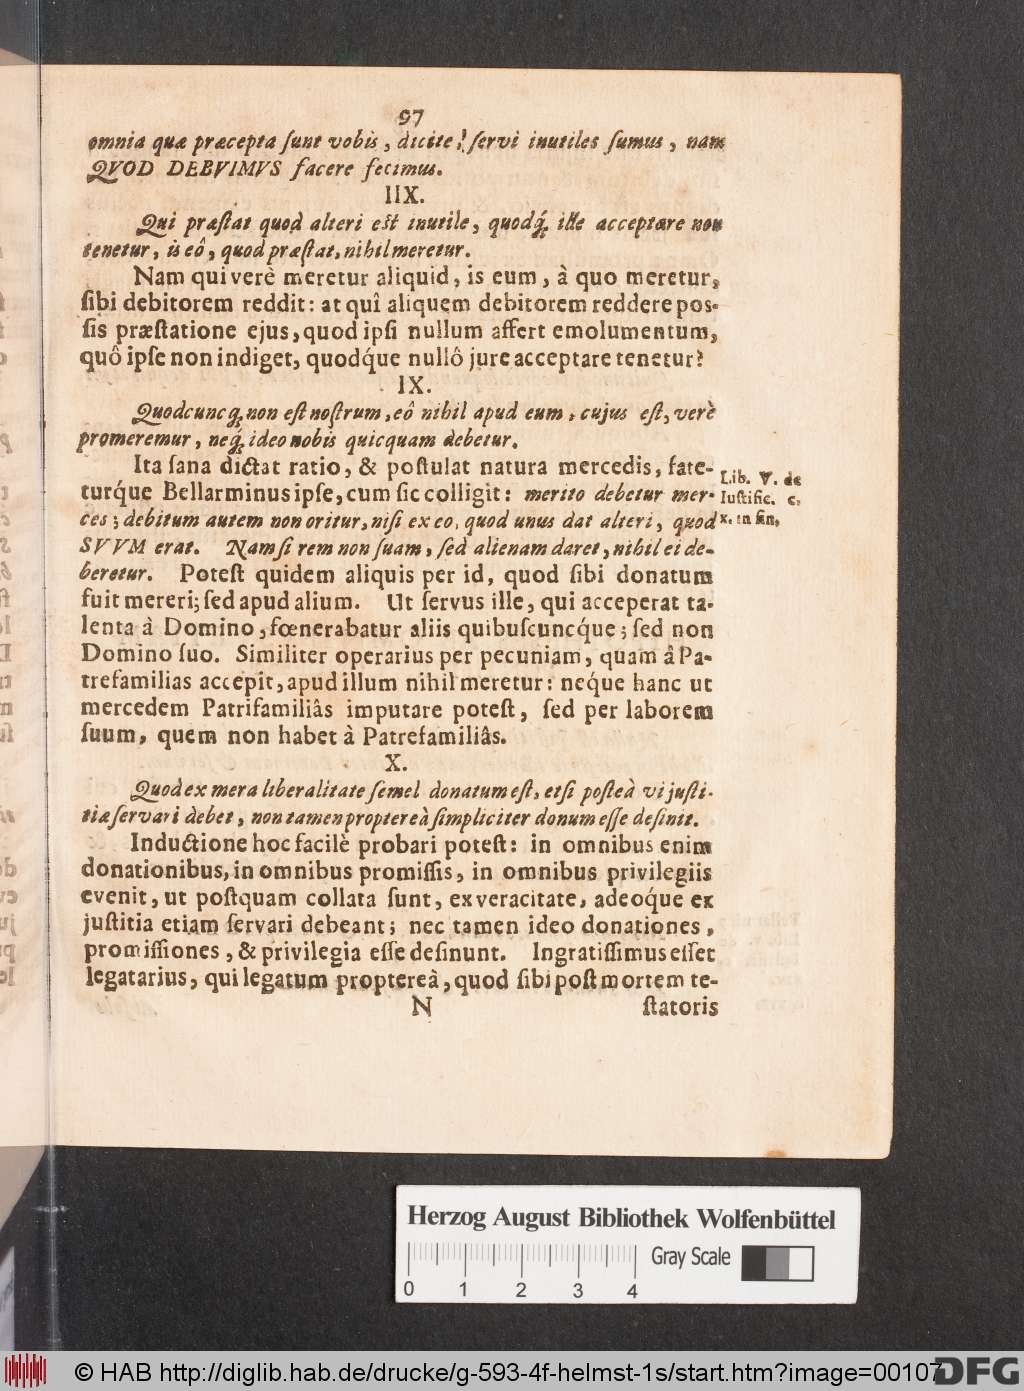 97
omnia quæ præcepta ſunt vobis, dicite, ſervi inutiles ſumus, nam
QVOD DEBVIMVS facere fecimus.
IIX.
Qui præſtat quod alteri eſt inutile, quodq́; ille acceptare non
tenetur, is eô, quod præſtat, nihil meretur.
Nam qui verè meretur aliquid, is eum, à quo meretur,
ſibi debitorem reddit: at quî aliquem debitorem reddere poſ-
ſis præſtatione ejus, quod ipſi nullum affert emolumentum,
quô ipſe non indiget, quodq́ue nullô jure acceptare tenetur?
IX.
Quodcuncq́; non eſt noſtrum, eô nihil apud eum, cujus eſt, verè
promeremur, neq́; ideo nobis quicquam debetur.
Ita ſana dictat ratio, & poſtulat natura mercedis, fate-
turq́ue Bellarminus ipſe, cum ſic colligit: merito debetur mer-
ces; debitum autem non oritur, niſi ex eo, quod unus dat alteri, quod
SVVM erat. Nam ſi rem non ſuam, ſed alienam daret, nihil ei de-
beretur. Poteſt quidem aliquis per id, quod ſibi donatum
fuit mereri; ſed apud alium. Ut ſervus ille, qui acceperat ta-
lenta à Domino, fœnerabatur aliis quibuſcuncq́ue; ſed non
Domino ſuo. Similiter operarius per pecuniam, quam â Pa-
trefamilias accepit, apud illum nihil meretur: neq́ue hanc ut
mercedem Patrifamiliâs imputare poteſt, ſed per laborem
ſuum, quem non habet à Patrefamiliâs.
Lib. V. de
Iuſtific. c.
x. in fin,
X.
Quod ex mera liberalitate ſemel donatum eſt, etſi poſteà vi juſti-
tiæ ſervari debet, non tamen proptereà ſimpliciter donum eſſe deſinit.
Inductione hoc facilè probari poteſt: in omnibus enim
donationibus, in omnibus promiſſis, in omnibus privilegiis
evenit, ut poſtquam collata ſunt, ex veracitate, adeoq́ue ex
juſtitia etiam ſervari debeant; nec tamen ideo donationes,
promiſſiones, & privilegia eſſe deſinunt. Ingratiſſimus eſſet
legatarius, qui legatum proptereà, quod ſibi poſt mortem te-
N ſtatoris
Herzog August Bibliothek Wolfenbüttel
Gray Scale
0 1 2 3 4
© HAB http://diglib.hab.de/drucke/g-593-4f-helmst-1s/start.htm?image=00107
DFG